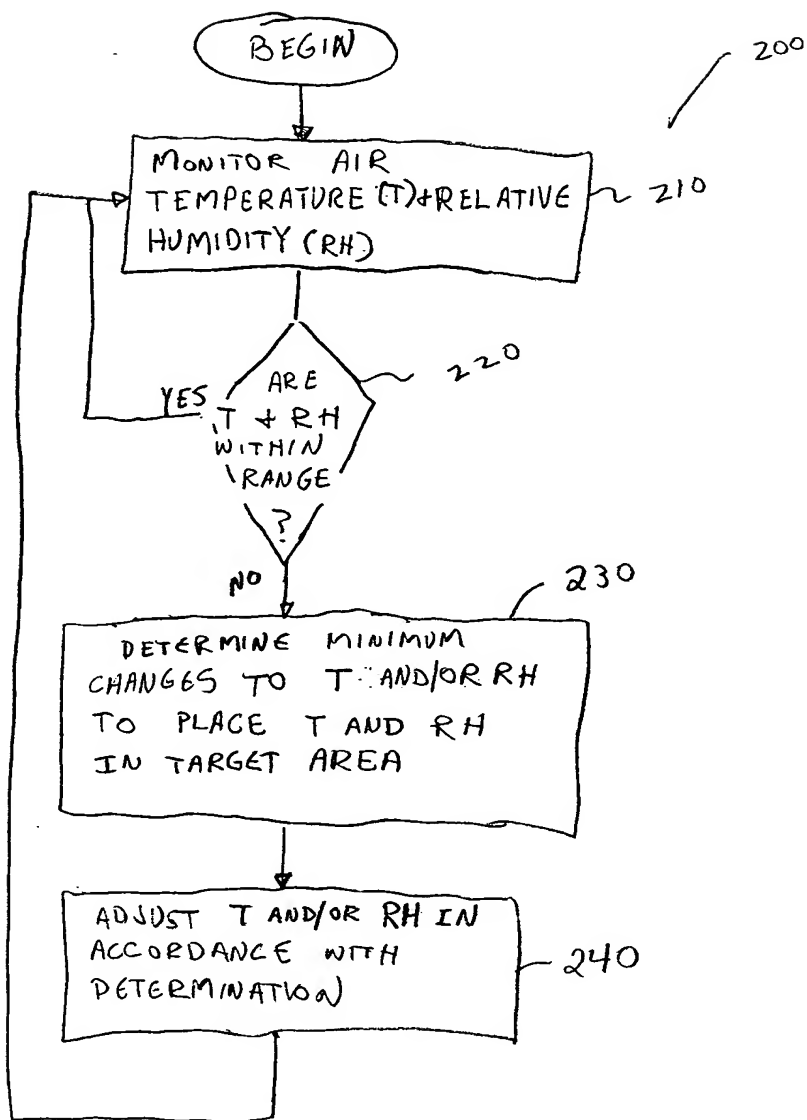 BEGIN
200
MONITOR AIR
TEMPERATURE (T)+RELATIVE
HUMIDITY (RH)
210
ARE
T + RH
WITHIN
RANGE
?
220
YES
NO
230
DETERMINE MINIMUM
CHANGES TO T AND/OR RH
TO PLACE T AND RH
IN TARGET AREA
ADJUST T AND/OR RH IN
ACCORDANCE WITH
DETERMINATION
240